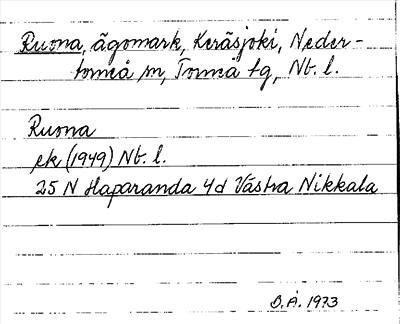 Ruona, ägomark, Keräsjoki, Neder-
torneå sn, Torneå tg, Nb. l.
Ruona
ek (1949) Nb. l.
25 N Haparanda 4d Västra Nikkala
D.Å. 1973